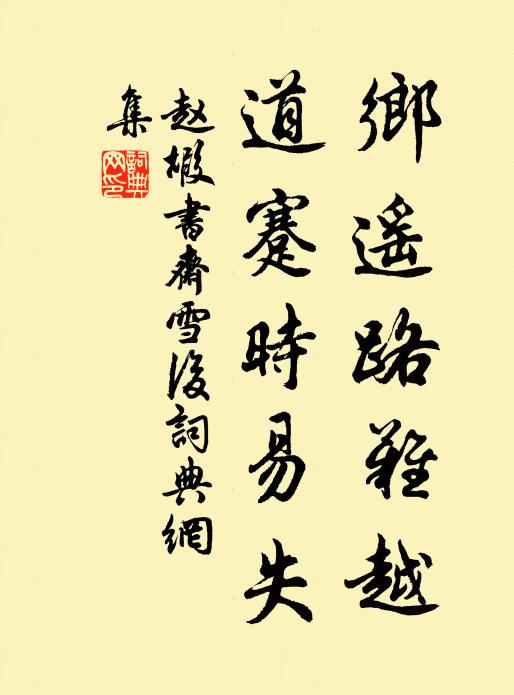 鄉遥路難越
道蹇時易失
赵嘏書齋雪後詞典網
集
詞典
网印